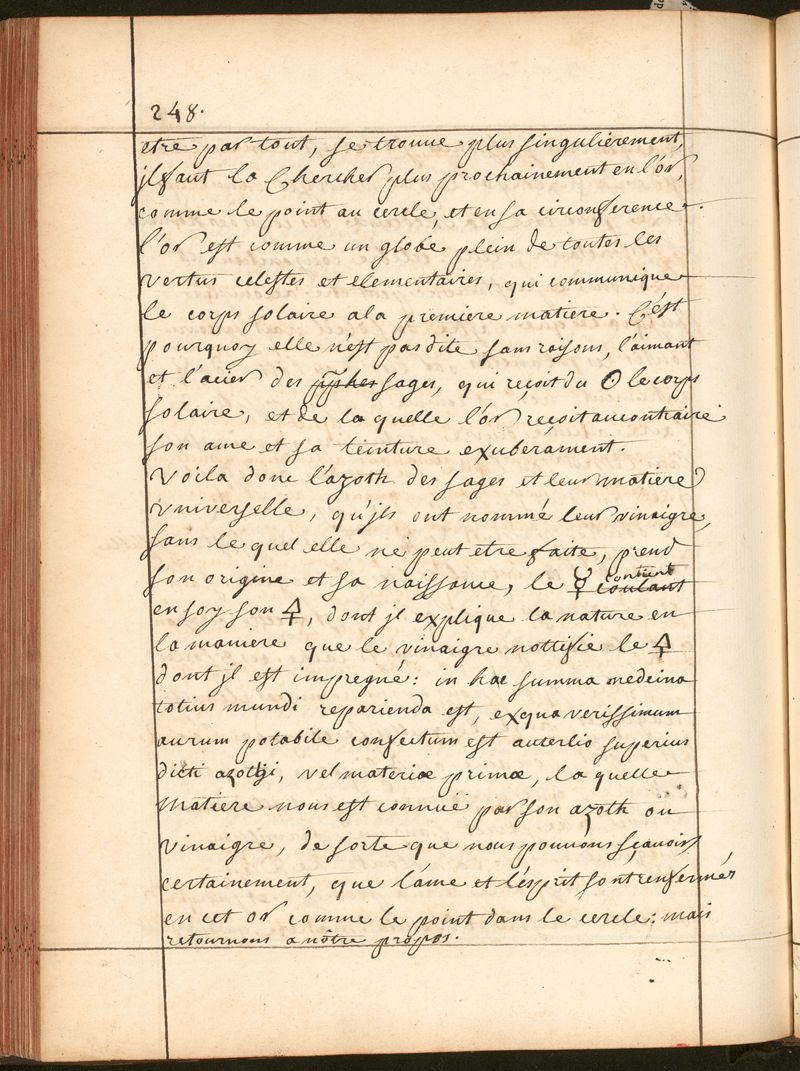 248.
etre par tout, se trouue plus singulierement,
jl faut la Chercher plus prochainement en l'or,
comme le point au cercle, et en sa circonference.
l'or est comme un globe plein de toutes les
vertus celestes et elementaires, qui communique
le corps solaire a la premiere matiere. C'est
pourquoy elle n'est pas dite sans raisons, l'aimant
et l'acier des sages, qui reçoit du ☉ le corps
solaire, et de la quelle l'or reçoit au contraire
son ame et sa teinture exubérament.
Voila donc l'azoth des sages et leur matiere
vniverselle, qu'jls ont nommé leur vinaigre,
sans le quel elle ne peut etre faite, prend
son origine et sa naissance, le ☿ coulant contient
en soy son 🜍, dont jl explique la nature en
la maniere que le vinaigre nottifie le 🜍
dont jl est impregné: in hac summa medeina
totius mundi reparienda est, ex qua verissimum
aurum potabile confectum est auterlio superius
dicti azothi, vel materiæ primæ, la quelle
Matiere nous est connuë par son azoth ou
vinaigre, de sorte que nous pouuons sçauoir
certainement, que l'ame et l'esprit sont renfermés
en cet or comme le point dans le cercle: mais
retournons a nôtre propos.